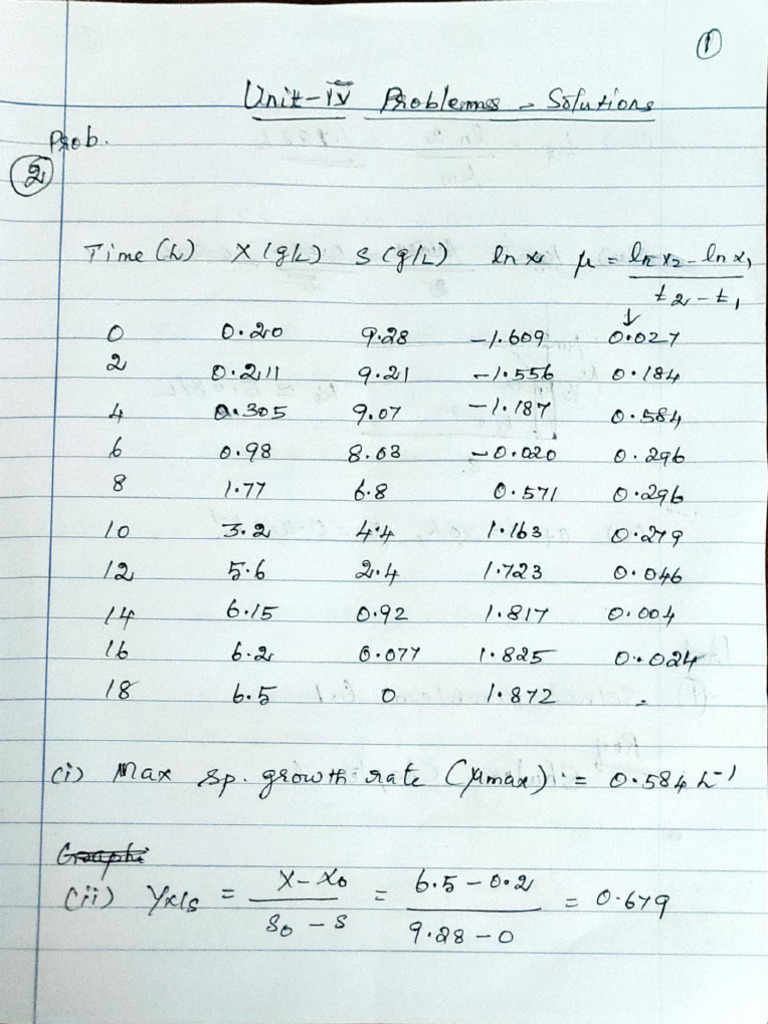 ①
Unit-IV Problemms - Solutions
Prob.
②
Time (h) X (g/L) S (g/L) ln x μ = (ln x2 - ln x1) / (t2 - t1)
↓
0 0.20 9.28 -1.609 0.027
2 0.211 9.21 -1.556 0.184
4 0.305 9.07 -1.187 0.584
6 0.98 8.03 -0.020 0.296
8 1.77 6.8 0.571 0.296
10 3.2 4.4 1.163 0.279
12 5.6 2.4 1.723 0.046
14 6.15 0.92 1.817 0.004
16 6.2 0.077 1.825 0.024
18 6.5 0 1.872 -
(i) Max sp. growth rate (μmax) = 0.584 h-1
Graphi
(ii) Yx/s = (X - x0) / (S0 - S) = (6.5 - 0.2) / (9.28 - 0) = 0.679